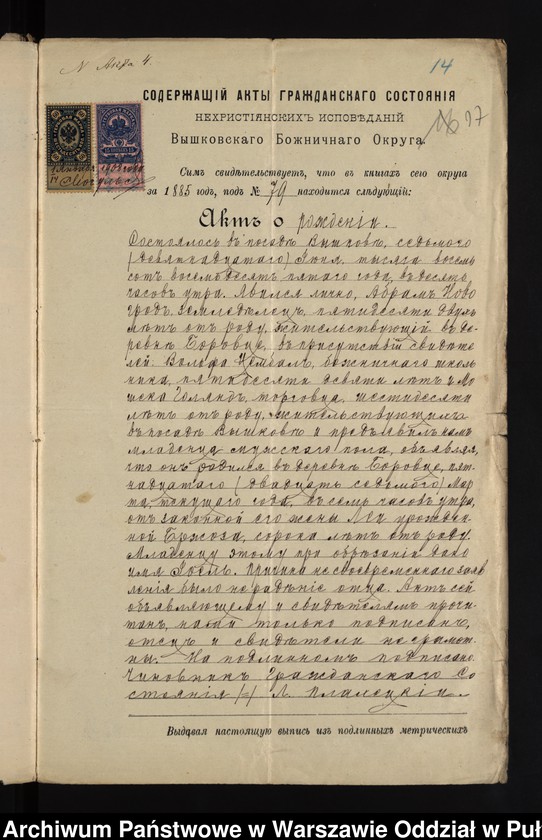 14
СОДЕРЖАЩІЙ АКТЫ ГРАЖДАНСКАГО СОСТОЯНІЯ
НЕХРИСТІЯНСКИХЪ ИСПОВѢДАНІЙ
Вышковскаго Божничнаго Округа.
Симъ свидѣтельствуетъ, что в книгахъ сего округа
за 1885 годъ, подъ № 79 находится слѣдующій:
Актъ о рожденіи.
Состоялось въ посадѣ Вышковѣ, седьмого
(девятнадцатаго) Іюня, тысяча восемь
сотъ восемьдесятъ пятаго года, въ десять
часовъ утра. Явился лично, Абрамъ Ново
гродъ, земледѣлецъ, пятидесяти двухъ
лѣтъ отъ роду, жительствующій въ де-
ревнѣ Боровце, въ присутствіи свидѣте
лей: Вольфа божничнаго школь
ника, пятидесяти девяти лѣтъ и Мо
шека Голяндъ, торговца, шестидесяти
лѣтъ отъ роду, жительствующихъ
въ посадѣ Вышковѣ и предъявилъ намъ
младенца мужскаго пола, объявляя,
что онъ родился въ деревнѣ Боровце, пят-
надцатаго (двадцать седьмого) Мар
та, текущаго года, въ семь часовъ утра,
отъ законной его жены Леи урожден
ной Бржоза, сорока лѣтъ отъ роду.
Младенцу этому при обрѣзаніи дано
имя Причина несвоевременнаго заяв
ленія было нерадѣніе отца. Актъ сей
объявляющему и свидѣтелямъ прочи-
танъ, нами только подписанъ,
отецъ и свидѣтели неграмот-
ны. На подлинномъ подписано
Чиновникъ Гражданскаго Со
стоянія (-) Л.
Выдавая настоящую выпись изъ подлинныхъ метрическихъ
Archiwum Państwowe w Warszawie Oddział w Puł